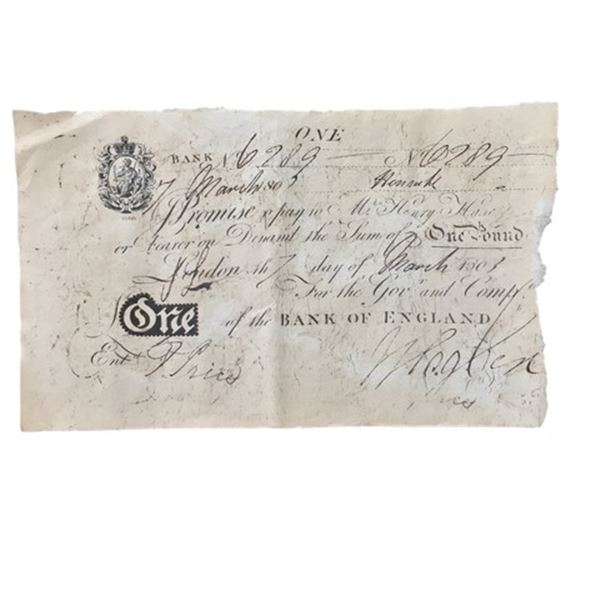 ONE
BANK N 6289 — No 6289 —
7 March 803
I Promise to pay to Mr. Henry Hase
or bearer on Demand the Sum of One Pound
London the 7 day of March 1803
For the Govr. and Compa.
One of the BANK OF ENGLAND
Entd. Price